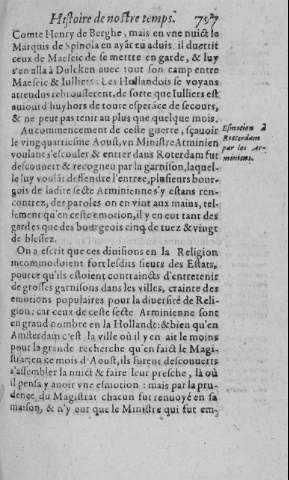 Histoire de nostre temps. 757
Comte Henry de Berghe, mais en vne nuict le
Marquis de Spinola en ayāt eu aduis il duertit
ceux de Maeseic de se mettre en garde, & luy
s'en alla à Dulcken auec tout son camp entre
Maeseic & Iulliers: Les Hollandois se voyans
attendus rebrousserent, de sorte que Iulliers est
auiourd'huy hors de toute esperāce de secours,
& ne peut pas tenir au plus que quelque mois.
Au commencement de ceste guerre, sçauoir
le vingtquatriesme Aoust, vn Ministre Arminien
voulant s'escouler & entrer dans Roterdam fut
descouuert & recogneu par la garnison, laquel-
le luy voulāt deffendre l'entree, plusieurs bour-
gois de ladite secte Arminienne s'y estans ren-
contrez, des paroles on en vint aux mains, tel-
lement qu'en ceste emotion, il y en eut tant des
gardes que des bourgeois cinq de tuez & vingt
de blessez.
Esmotion à
Roterdam
par les Ar-
miniens.
On a escrit que ces diuisions en la Religion
incommodoient fort lesdits sieurs des Estats,
pource qu'ils estoient contraincts d'entretenir
de grosses garnisons dans les villes, crainte des
emotions populaires pour la diuersité de Reli-
gion: car ceux de ceste secte Arminienne sont
en grand nombre en la Hollande: & bien qu'en
Amsterdam c'est la ville où il y en ait le moins
pour la grande recherche qu'en faict le Magi-
strat, en ce mois d'Aoust, ils furent descouuerts
s'assembler la nuict & faire leur presche, là où
il pensa y auoir vne esmotion: mais par la pru-
dence du Magistrat chacun fut renuoyé en sa
maison, & n'y eut que le Ministre qui fut em-